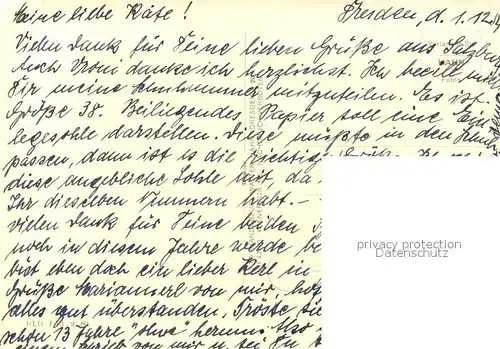 Meine liebe Käte! Dresden, d. 1.12.
Vielen Dank für Deine lieben Grüße aus Salzburg
Auch Vroni danke ich herzlichst. Ich beeile mich
Dir meine Schuhnummer mitzuteilen. Es ist
Größe 38. Beiliegendes Papier soll eine Ein
legesohle darstellen. Diese müßte in den
passen, dann ist es die richtige
diese angebliche Sohle mit, da
Ihr dieselben Nummern habt. –
vielen Dank für Deine beiden
noch in diesem Jahre werde
bist eben doch ein lieber Kerl in
Grüße Mariannerl von mir,
alles gut überstanden. Tröste sie
schon 13 Jahre "ohne" herum. Also
von mir u. sei Du
privacy protection
Datenschutz